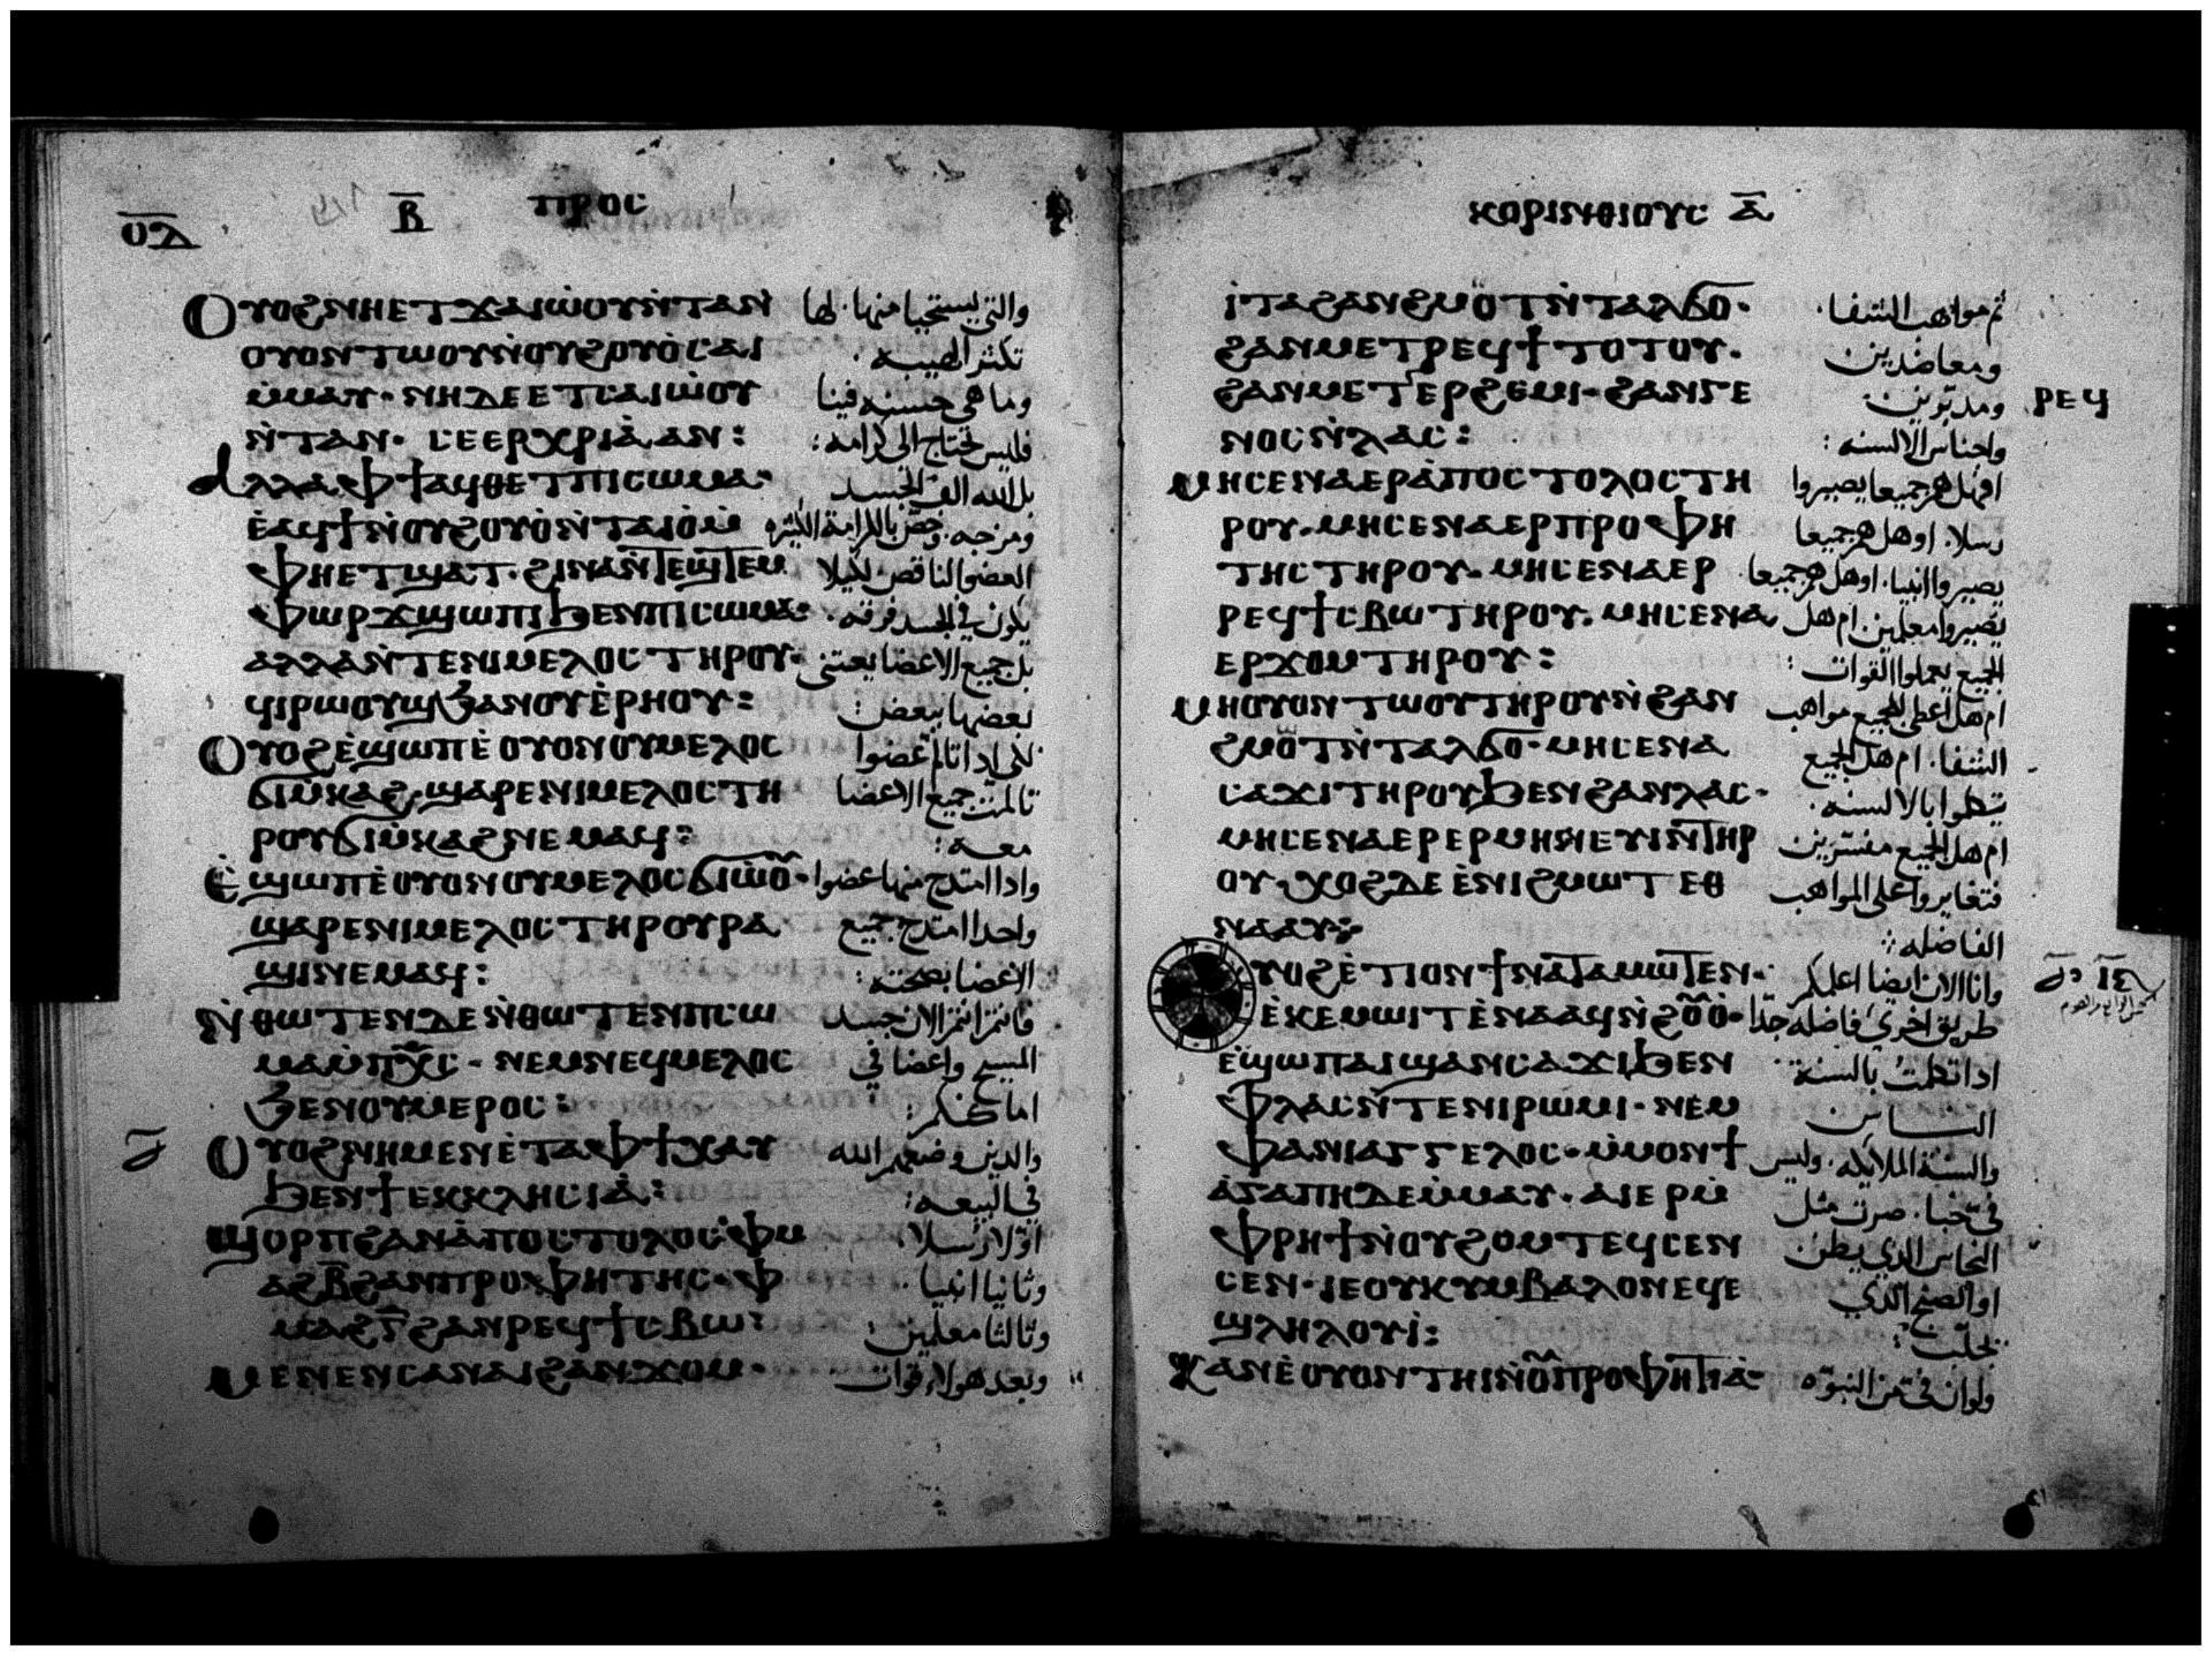 ⲟⲁ Ⲃ ⲡⲣⲟⲥ
Ⲟⲩⲟϩ ⲛⲏ ⲉⲧϫⲁⲓⲱⲟⲩ ⲛ̀ⲧⲁⲛ والتي يستحيا منها. لها
ⲟⲩⲟⲛⲧⲱⲟⲩ ⲛ̀ⲟⲩϩⲟⲩⲟ̀ ⲥⲁⲓ تكثر الهيبه.
ⲙ̀ⲙⲁⲩ· ⲛⲏ ⲇⲉ ⲉⲧⲥⲁⲓⲱⲟⲩ وما هي حسنه فينا
ⲛ̀ⲧⲁⲛ· ⲥⲉⲉⲣⲭⲣⲓⲁ̀ ⲁⲛ: فليس تحتاج الى كرامه:
Ⲁⲗⲗⲁ ⲫϯ ⲁϥⲑⲉⲧ ⲡⲓⲥⲱⲙⲁ· بل الله الف الجسد
ⲉ̀ⲁϥϯ ⲛ̀ⲟⲩϩⲟⲩⲟ̀ ⲛ̀ⲧⲁⲓⲟ̀ ⲙ̀ ومزجه. وخص بالكرامة الكثيره
ⲫⲏ ⲉⲧϣⲁⲧ· ϩⲓⲛⲁ ⲛ̀ⲧⲉϣⲧⲉⲙ العضو الناقص لكيلا
ⲫⲱⲣϫ ϣⲱⲡⲓ ϧⲉⲛ ⲡⲓⲥⲱⲙⲁ· يكون في الجسد فرقه.
ⲁⲗⲗⲁ ⲛ̀ⲧⲉ ⲛⲓⲙⲉⲗⲟⲥ ⲧⲏⲣⲟⲩ· بل جميع الاعضا يعتني
ϥⲓⲣⲱⲟⲩϣ ϧⲁ ⲛⲟⲩⲉ̀ⲣⲏⲟⲩ: بعضها ببعض:
Ⲟⲩⲟϩ ⲉ̀ϣⲱⲡ ⲉ̀ ⲟⲩⲟⲛ ⲟⲩⲙⲉⲗⲟⲥ لكي اذا تالم عضوا
ϭⲓⲙ̀ⲕⲁϩ· ϣⲁⲣⲉ ⲛⲓⲙⲉⲗⲟⲥ ⲧⲏ تالمت جميع الاعضا
ⲣⲟⲩ ϭⲓⲙ̀ⲕⲁϩ ⲛⲉⲙⲁϥ: معه:
Ⲉ̀ϣⲱⲡ ⲉ̀ ⲟⲩⲟⲛ ⲟⲩⲙⲉⲗⲟⲥ ϭⲓⲱ̀ⲟ̅· واذا امتدح منها عضوا
ϣⲁⲣⲉ ⲛⲓⲙⲉⲗⲟⲥ ⲧⲏⲣⲟⲩ ⲣⲁ واحدا امتدح جميع
ϣⲓ ⲛⲉⲙⲁϥ: الاعضا
Ⲛ̀ⲑⲱⲧⲉⲛ ⲇⲉ ⲛ̀ⲑⲱⲧⲉⲛ ⲡⲥⲱ فانتم انتم الان جسد
ⲙⲁ ⲙ̀ⲡⲭ̅ⲥ̅· ⲛⲉⲙ ⲛⲉϥⲙⲉⲗⲟⲥ المسيح واعضا في
ϧⲉⲛ ⲟⲩⲙⲉⲣⲟⲥ: اماكنكم:
Ⲟⲩⲟϩ ⲛⲏ ⲙⲉⲛ ⲉ̀ⲧⲁ ⲫϯ ⲭⲁⲩ والذين وضعهم الله
ϧⲉⲛ ϯⲉⲕⲕⲗⲏⲥⲓⲁ̀: في البيعه:
Ϣⲟⲣⲡ ϩⲁⲛⲁ̀ⲡⲟⲥⲧⲟⲗⲟⲥ· ⲫⲙ اولا رسلا.
ⲁϩⲂ̅ ϩⲁⲛⲡⲣⲟⲫⲏⲧⲏⲥ· ⲫ وثانيا انبيا.
ⲙⲁϩⲅ̅ ϩⲁⲛⲣⲉϥϯⲥⲃⲱ: وثالثا معلمين:
Ⲙⲉⲛⲉⲛⲥⲁ ⲛⲁⲓ ϩⲁⲛϫⲟⲙ· وبعد هولاء قوات
ⲕⲟⲣⲓⲛⲑⲓⲟⲩⲥ ⲁ̅
ⲓ̀ⲧⲁ ϩⲁⲛϩⲙⲟⲧ ⲛ̀ⲧⲁⲗϭⲟ· ثم مواهب الشفا.
ϩⲁⲛⲙⲉⲧⲣⲉϥϯⲧⲟⲧⲟⲩ· ومعاضدين
ϩⲁⲛⲙⲉⲧⲉⲣϩⲉⲙⲓ· ϩⲁⲛⲅⲉ ومدبرين. ⲣⲉϥ
ⲛⲟⲥ ⲛ̀ⲗⲁⲥ: واجناس الالسنه:
Ⲙⲏ ⲥⲉⲛⲁⲉⲣⲁ̀ⲡⲟⲥⲧⲟⲗⲟⲥ ⲧⲏ افهل هم جميعا يصيروا
ⲣⲟⲩ· ⲙⲏ ⲥⲉⲛⲁⲉⲣⲡⲣⲟⲫⲏ رسلا. اوهل هم جميعا
ⲧⲏⲥ ⲧⲏⲣⲟⲩ· ⲙⲏ ⲥⲉⲛⲁⲉⲣ يصيروا انبيا. اوهل هم جميعا.
ⲣⲉϥϯⲥⲃⲱ ⲧⲏⲣⲟⲩ· ⲙⲏ ⲥⲉⲛⲁ يصيروا معلمين. ام هل
ⲉⲣϫⲟⲙ ⲧⲏⲣⲟⲩ: الجميع يعملوا القوات:
Ⲙⲏ ⲟⲩⲟⲛⲧⲱⲟⲩ ⲧⲏⲣⲟⲩ ⲛ̀ϩⲁⲛ ام هل اعطى الجميع مواهب
ϩⲙⲟⲧ ⲛ̀ⲧⲁⲗϭⲟ· ⲙⲏ ⲥⲉⲛⲁ الشفا. ام هل الجميع
ⲥⲁϫⲓ ⲧⲏⲣⲟⲩ ϧⲉⲛ ϩⲁⲛⲗⲁⲥ· يتكلموا بالالسنه.
ⲙⲏ ⲥⲉⲛⲁⲉⲣⲉⲣⲙⲏⲛⲉⲩⲓⲛ ⲧⲏⲣ ام هل الجميع مفسرين
ⲟⲩ· ⲭⲟϩ ⲇⲉ ⲉ̀ⲛⲓϩⲙⲱⲧ ⲉⲑ فتغايروا على المواهب
ⲛⲁⲁⲩ: الفاضله:
Ⲟⲩⲟϩ ⲉ̀ⲧⲓ ⲟⲛ ϯⲛⲁⲧⲁⲙⲱⲧⲉⲛ· وانا الان ايضا اعلمكم
ⲉ̀ⲕⲉⲙⲱⲓⲧ ⲉ̀ⲛⲁⲁϥ ⲛ̀ϩⲟ̅ⲟ̀· طريق اخرى فاضله جدا
ⲉϣⲱⲡ ⲁⲓϣⲁⲛⲥⲁϫⲓ ϧⲉⲛ اذا تكلمت بالسنة
ⲫⲗⲁⲥ ⲛ̀ⲧⲉ ⲛⲓⲣⲱⲙⲓ· ⲛⲉⲙ الناس
ⲫⲁ ⲛⲓⲁⲅⲅⲉⲗⲟⲥ· ⲙ̀ⲙⲟⲛ ϯ والسنة الملايكه. وليس
ⲁ̀ⲅⲁⲡⲏ ⲇⲉ ⲙ̀ⲙⲁⲩ· ⲁⲓⲉⲣ ⲙ̀ صرت مثل
ⲫⲣⲏϯ ⲛ̀ⲟⲩϩⲟⲙⲧ ⲉϥⲥⲉⲛ النحاس الذي يطن
ⲥⲉⲛ· ⲓⲉ ⲟⲩⲕⲩⲙⲃⲁⲗⲟⲛ ⲉϥⲉ او الصنج الذي
ϣⲗⲏⲗⲟⲩⲓ̀:
Ⲕⲁⲛ ⲉ̀ ⲟⲩⲟⲛⲧⲏⲓ ⲛ̀ⲟ̅ⲡⲣⲟⲫⲏⲧⲓⲁ̀· ولو ان في من النبوه